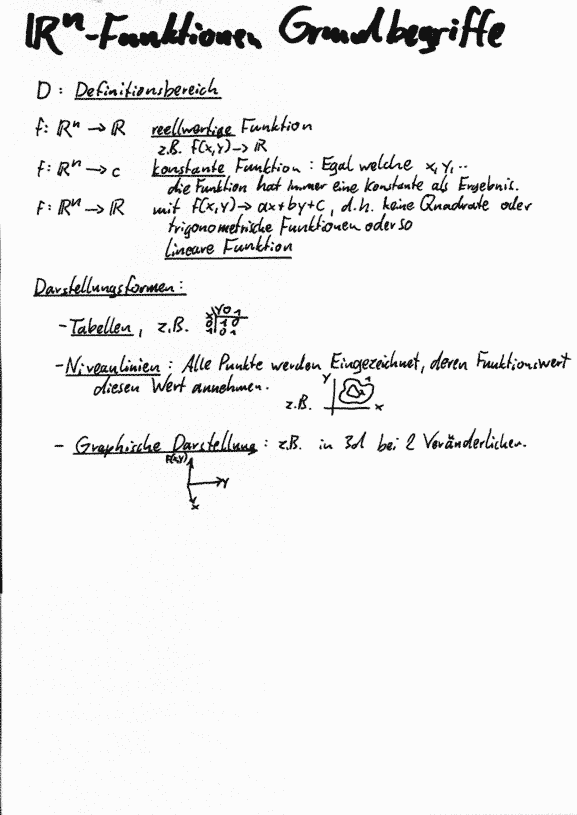 ℝⁿ-Funktionen Grundbegriffe
D : Definitionsbereich
f: ℝⁿ → ℝ reellwertige Funktion
z.B. f(x,y) → ℝ
f: ℝⁿ → c konstante Funktion : Egal welche x, y, ..
die Funktion hat immer eine Konstante als Ergebnis.
f: ℝⁿ → ℝ mit f(x,y) → ax+by+c, d.h. keine Quadrate oder
trigonometrische Funktionen oder so
lineare Funktion
Darstellungsformen:
- Tabellen, z.B.
x\y 0 1
0 1 0
1 0 1
- Niveaulinien : Alle Punkte werden Eingezeichnet, deren Funktionswert
diesen Wert annehmen.
z.B. y 1 x
- Graphische Darstellung : z.B. in 3d bei 2 Veränderlichen.
f(x,y)
y
x